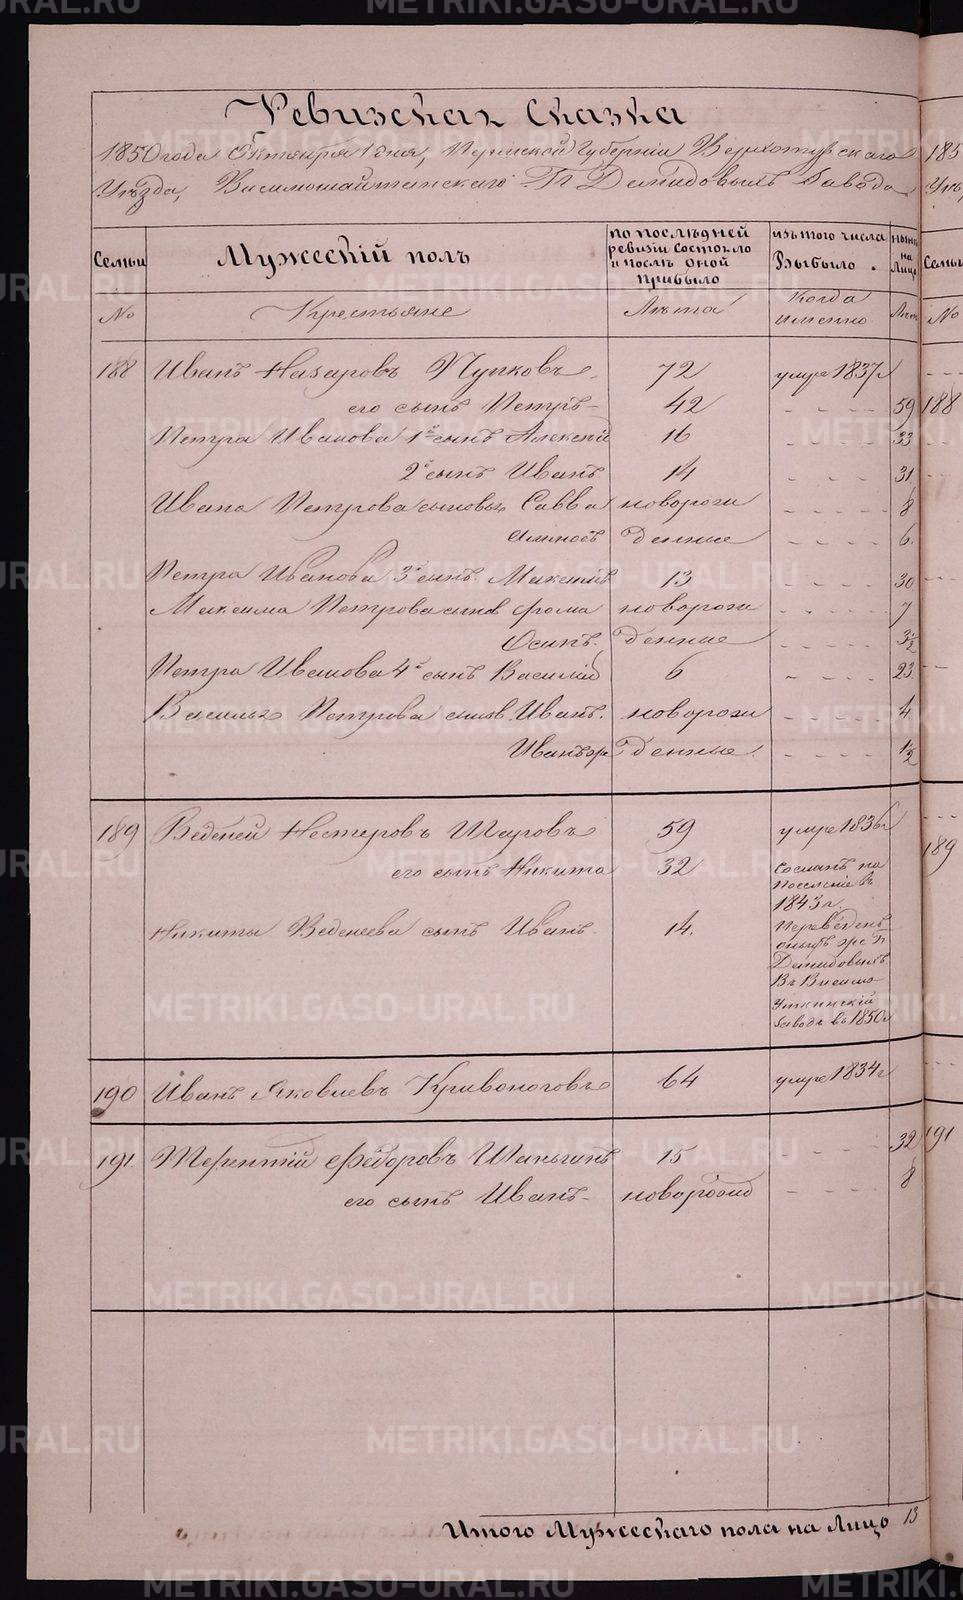 METRIKI.GASO-URAL.RU
Ревизская Сказка
1850 года Октября 1 дня, Пермской Губерніи Верхотурскаго
Уѣзда, Висимошайтанскаго Гг Демидовыхъ Завода
Семьи
Мужескій полъ
по послѣдней ревизіи состояло и послѣ оной прибыло
изъ того числа Выбыло.
нынѣ на Лицо
№
Крестьяне
Лѣта
Когда именно
Лѣта
188 Иванъ Назаровъ Пупковъ 72 умре 1837 г
его сынъ Петръ 42 59
Петра Иванова 1й сынъ Алексѣй 16 33
2й сынъ Иванъ 14 31
Ивана Петрова сыновья Савва новорож 8
Амносъ денные 6
Петра Иванова 3й сынъ Максимъ 13 30
Максима Петрова сынов Фома новорож 7
Осипъ денные 3 1/2
Петра Иванова 4й сынъ Василій 6 23
Василья Петрова сынов. Иванъ новорож 4
Иванъ же денные 1/2
189 Веденей Нестеровъ Шаровъ 59 умре 1836 г
его сынъ Никита 32 Сосланъ на Поселеніе въ 1843 г.
Никиты Веденеева сынъ Иванъ 14. Переведенъ оныхъ же Гг Демидовыхъ Въ Висимо Уткинскій Заводъ въ 1850 г
190 Иванъ Яковлевъ Кривоноговъ 64 умре 1834 г
191 Терентій Ѳедоровъ Шаньгинъ 15 32
его сынъ Иванъ новорожд 8
Итого Мужескаго пола на Лицо 13